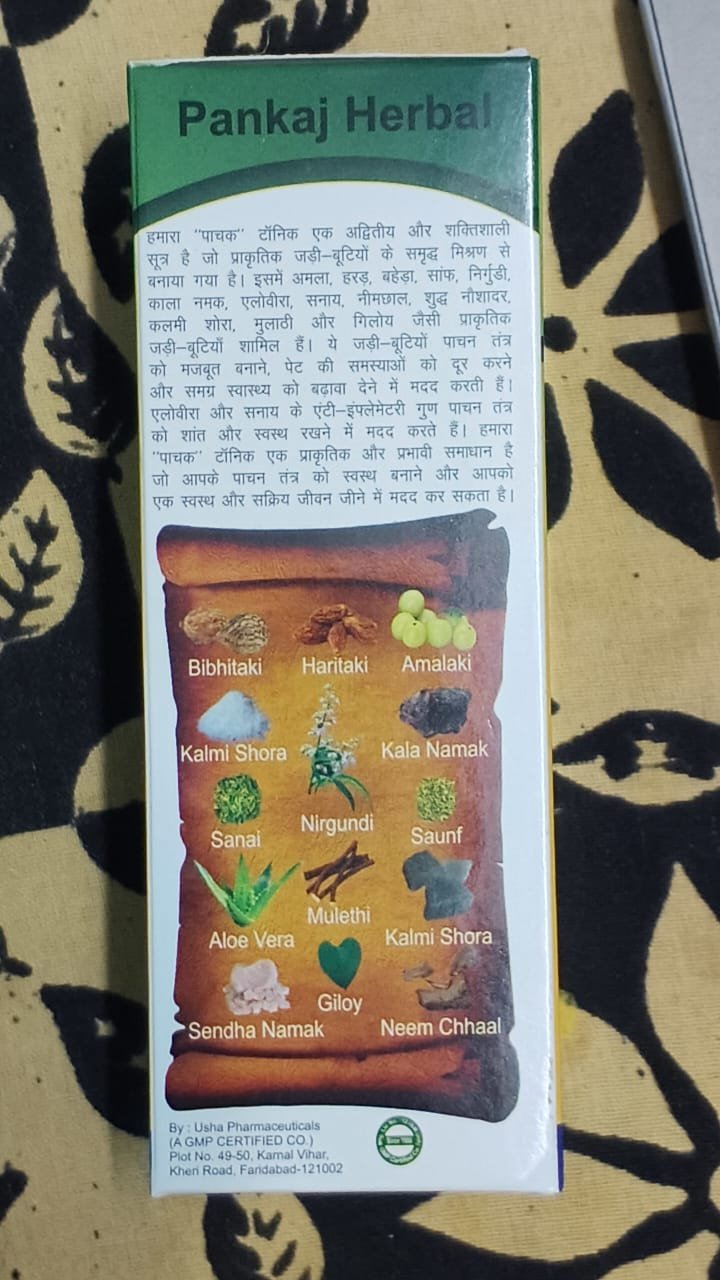 Pankaj Herbal
हमारा "पाचक" टॉनिक एक अद्वितीय और शक्तिशाली
सूत्र है जो प्राकृतिक जड़ी–बूटियों के समृद्ध मिश्रण से
बनाया गया है। इसमें अमला, हरड़, बहेड़ा, सांफ, निर्गुडी,
काला नमक, एलोवीरा, सनाय, नीमछाल, शुद्ध नौशादर,
कलमी शोरा, मुलाठी और गिलोय जैसी प्राकृतिक
जड़ी–बूटियाँ शामिल हैं। ये जड़ी–बूटियों पाचन तंत्र
को मजबूत बनाने, पेट की समस्याओं को दूर करने
और समग्र स्वास्थ्य को बढ़ावा देने में मदद करती हैं।
एलोवीरा और सनाय के एंटी–इंफ्लेमेटरी गुण पाचन तंत्र
को शांत और स्वस्थ रखने में मदद करते हैं। हमारा
"पाचक" टॉनिक एक प्राकृतिक और प्रभावी समाधान है
जो आपके पाचन तंत्र को स्वस्थ बनाने और आपको
एक स्वस्थ और सक्रिय जीवन जीने में मदद कर सकता है।
Bibhitaki Haritaki Amalaki
Kalmi Shora Kala Namak
Sanai Nirgundi Saunf
Mulethi
Aloe Vera Kalmi Shora
Giloy
Sendha Namak Neem Chhaal
By : Usha Pharmaceuticals
(A GMP CERTIFIED CO.)
Plot No. 49-50, Kamal Vihar,
Kheri Road, Faridabad-121002